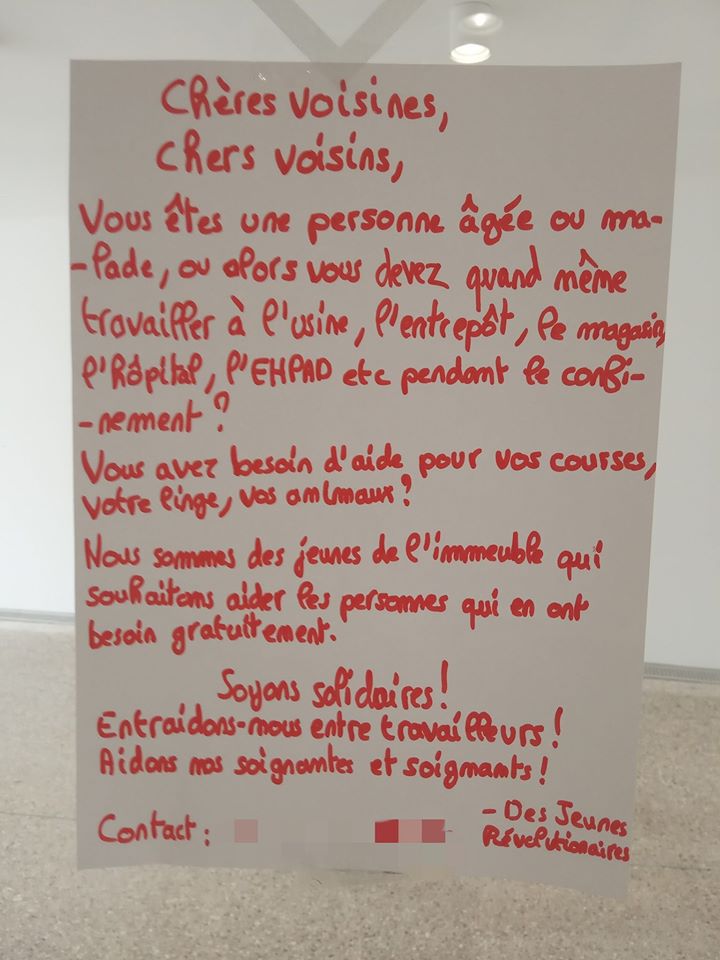 Chères voisines,
chers voisins,
Vous êtes une personne âgée ou ma-
-lade, ou alors vous devez quand même
travailler à l'usine, l'entrepôt, le magasin,
l'hôpital, l'EHPAD etc pendant le confi-
-nement ?
Vous avez besoin d'aide pour vos courses,
votre linge, vos animaux ?
Nous sommes des jeunes de l'immeuble qui
souhaitons aider les personnes qui en ont
besoin gratuitement.
Soyons solidaires !
Entraidons-nous entre travailleurs !
Aidons nos soignantes et soignants !
Contact :
- Des Jeunes
Révolutionaires